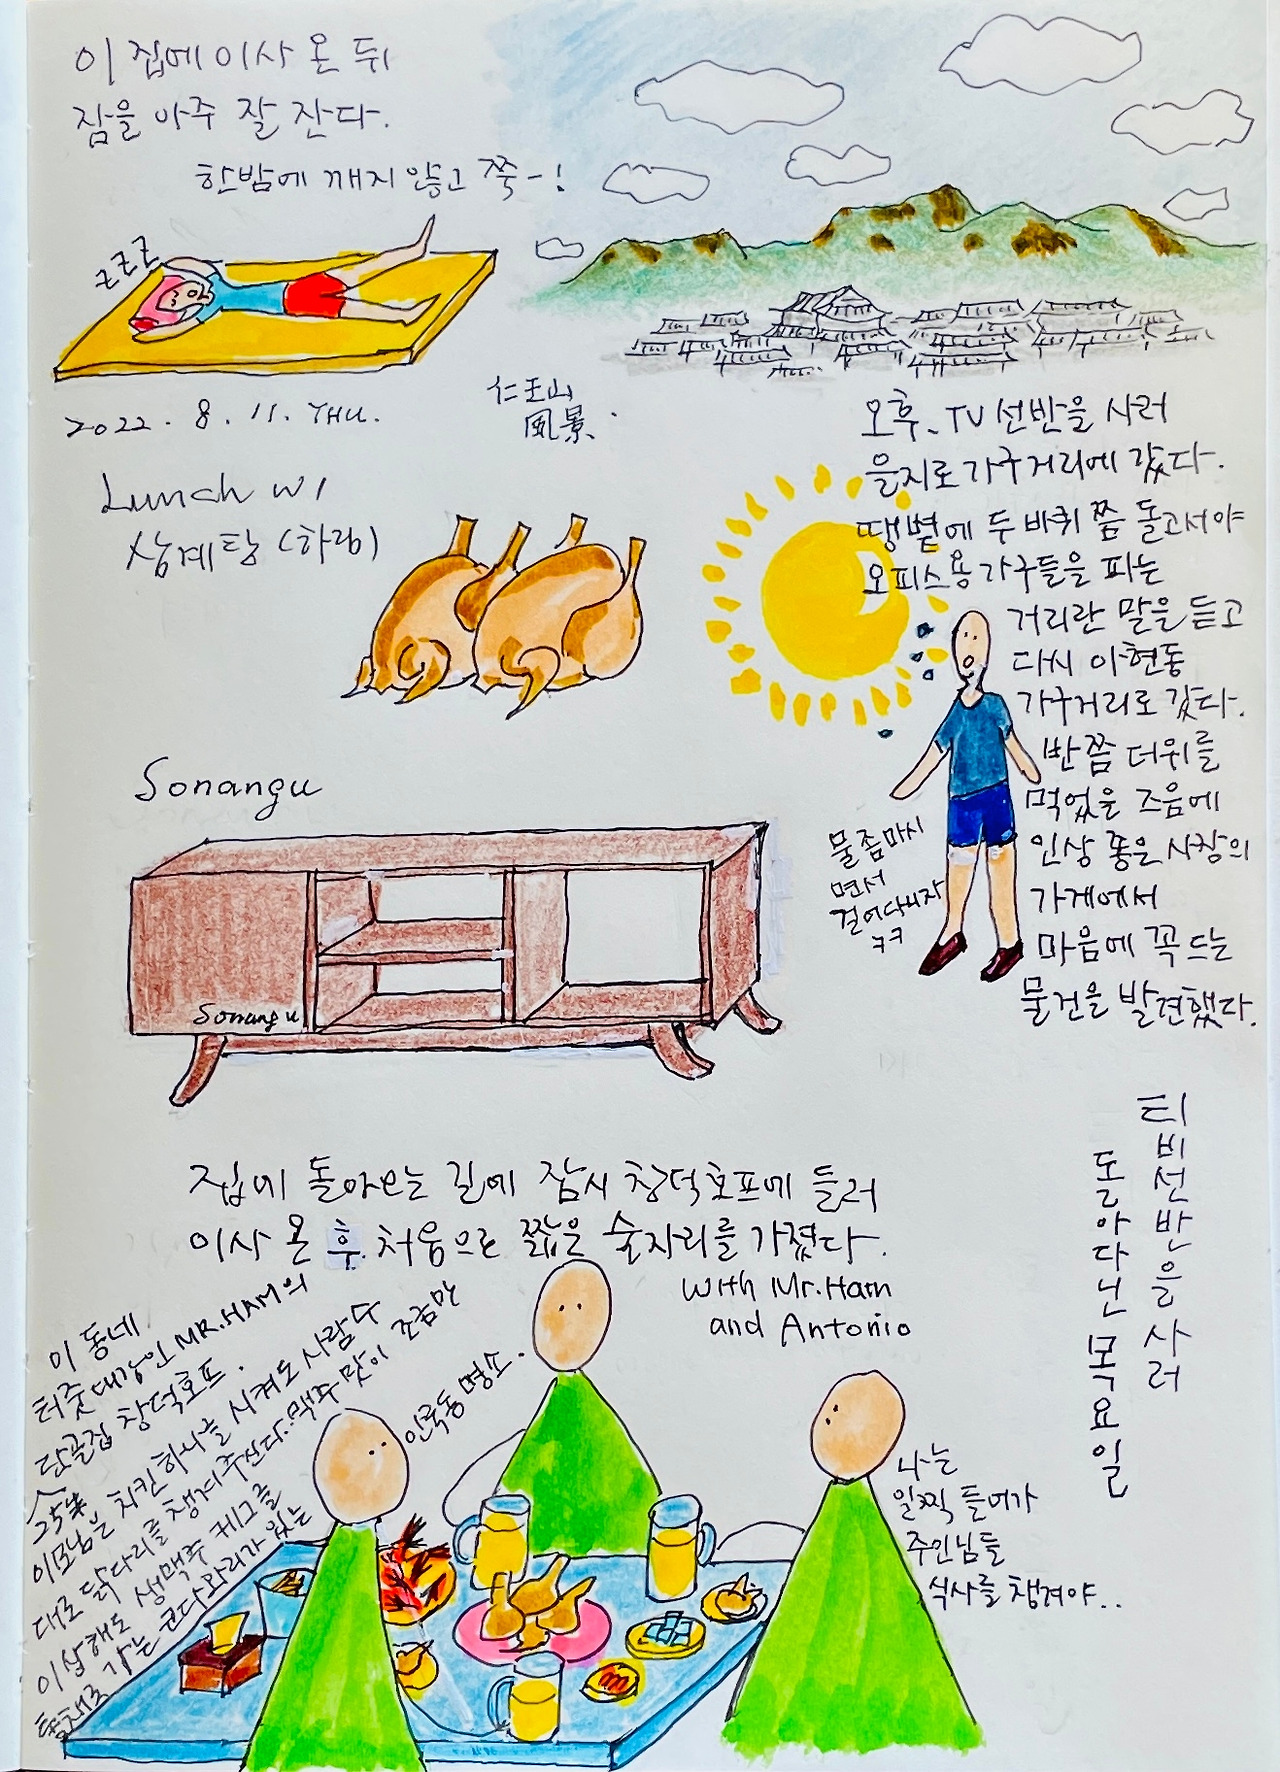 이 집에 이사 온 뒤
잠을 아주 잘 잔다.
한밤에 깨지 않고 쭉-!
zZZ
2022. 8. 11. THU.
仁王山
風景.
Lunch w/
삼계탕 (하림)
오후, TV 선반을 사러
을지로 가구거리에 갔다.
땡볕에 두 바퀴 쯤 돌고서야
오피스용 가구들을 파는
거리란 말을 듣고
다시 아현동
가구거리로 갔다.
반쯤 더위를
먹었을 즈음에
인상 좋은 사장의
가게에서
마음에 꼭 드는
물건을 발견했다.
물 좀 마시
면서
걸어다니자
ㅋㅋ
Sonangu
Sonangu
티비선반을 사러
돌아다닌 목요일
집에 돌아오는 길에 잠시 창덕호프에 들러
이사 온 후 처음으로 짧은 술자리를 가졌다.
with Mr. Ham
and Antonio
이 동네
터줏대감인 MR. HAM의
단골집 창덕호프.
이모님은 치킨 하나를 시켜도 사람 수
대로 닭다리를 챙겨주신다.. 맥주 맛이 조금만
이상해도 생맥주 케그를
통채로 가는
인록동 명소.
나는
일찍 들어가
주인님들
식사를 챙겨야..